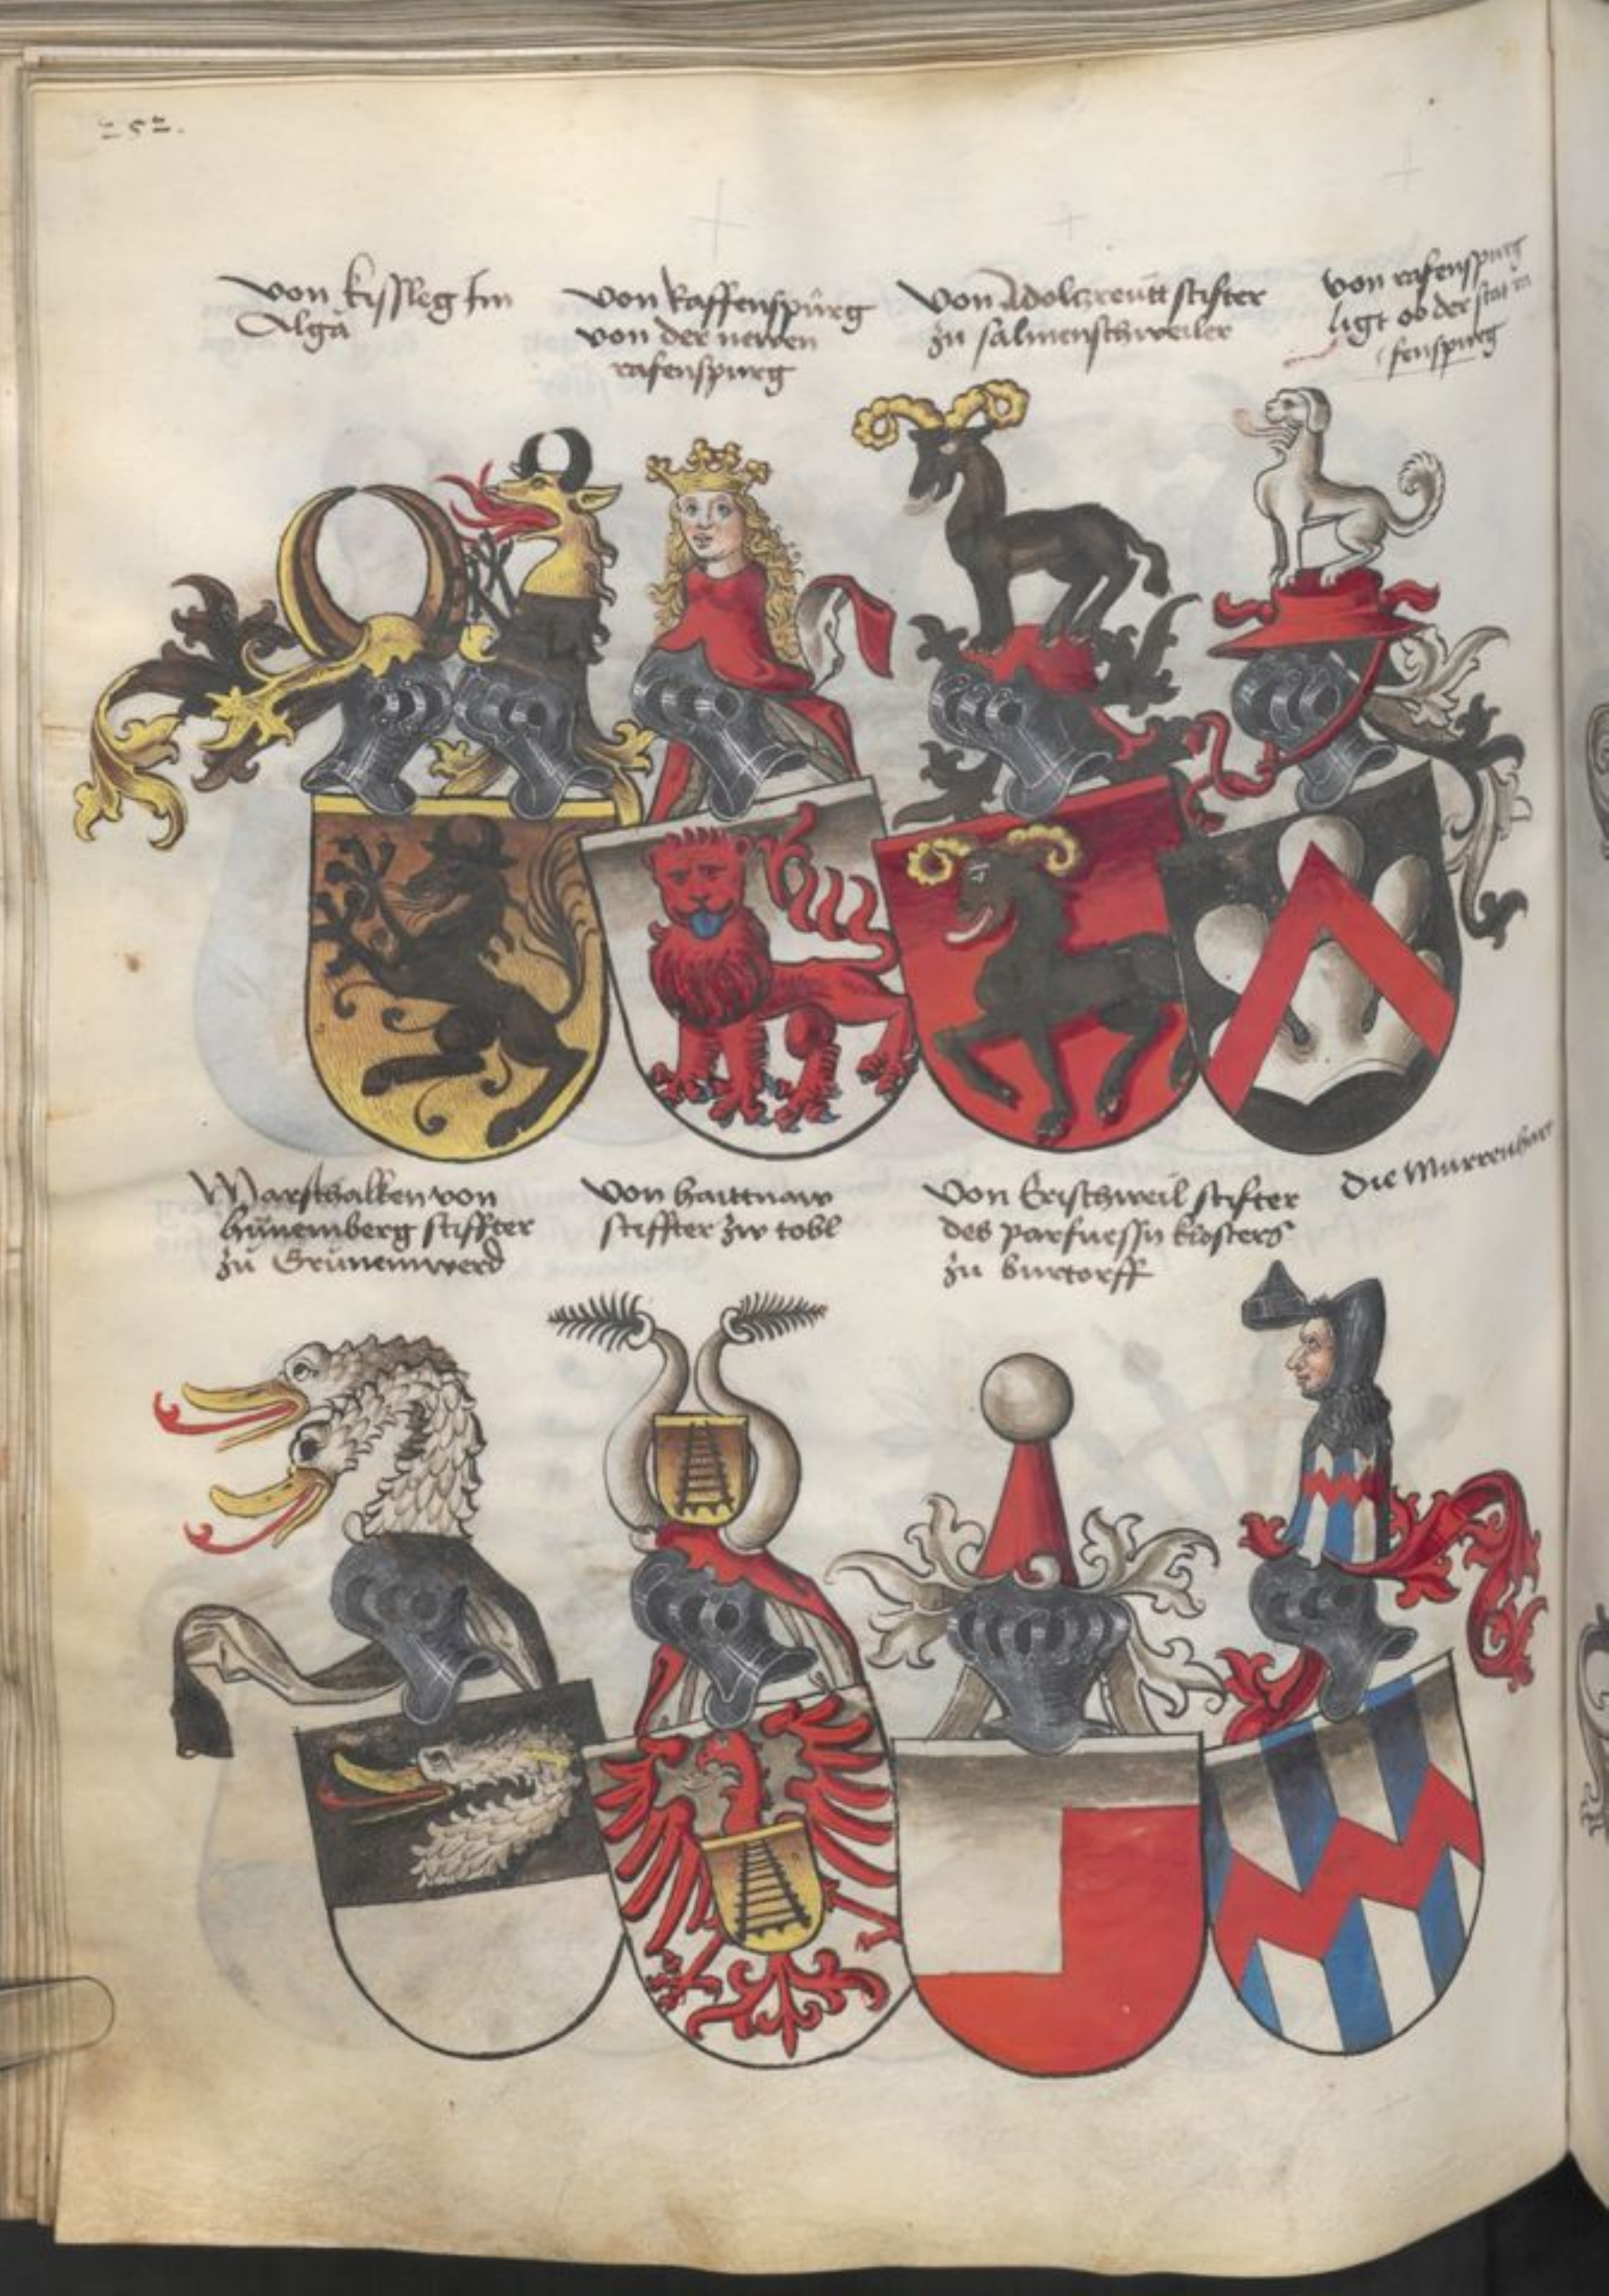 252.
von kissleg Im
Algä
von Raffenspürg
von der newen
rafenspurg
Von Adolczreütt stifter
zü salmenschweiler
von rafenspurg
ligt ob der stat
fenspurg
Marschalken von
hünemberg stiffter
zü Grünenwerd
Von haittnaw
stiffter zw tobl
Von Erischweil stifter
des parfuessn klosters
zü burtorff
Die Murrenhart